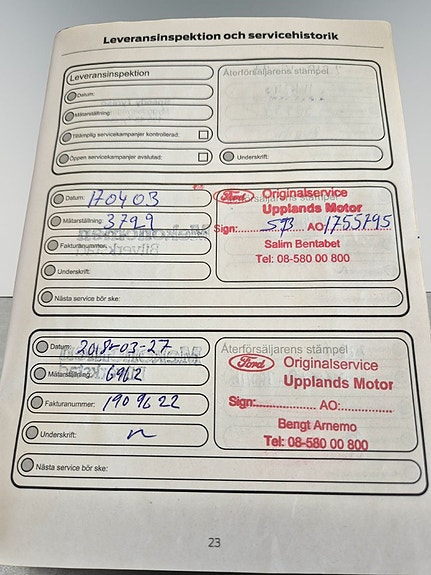 Leveransinspektion och servicehistorik
Leveransinspektion
Återförsäljarens stämpel
Datum:
Mätarställning:
Tillämplig servicekampanjer kontrollerad:
Öppen servicekampanjer avslutad:
Underskrift:
Datum: 170403
Mätarställning: 3799
Fakturanummer:
Underskrift:
Nästa service bör ske:
Återförsäljarens stämpel
Ford Originalservice
Upplands Motor
Sign: AO: 1755795
Salim Bentabet
Tel: 08-580 00 800
Datum: 2018-03-27
Mätarställning: 6962
Fakturanummer: 1909622
Underskrift:
Nästa service bör ske:
Återförsäljarens stämpel
Ford Originalservice
Upplands Motor
Sign: AO:
Bengt Arnemo
Tel: 08-580 00 800
23